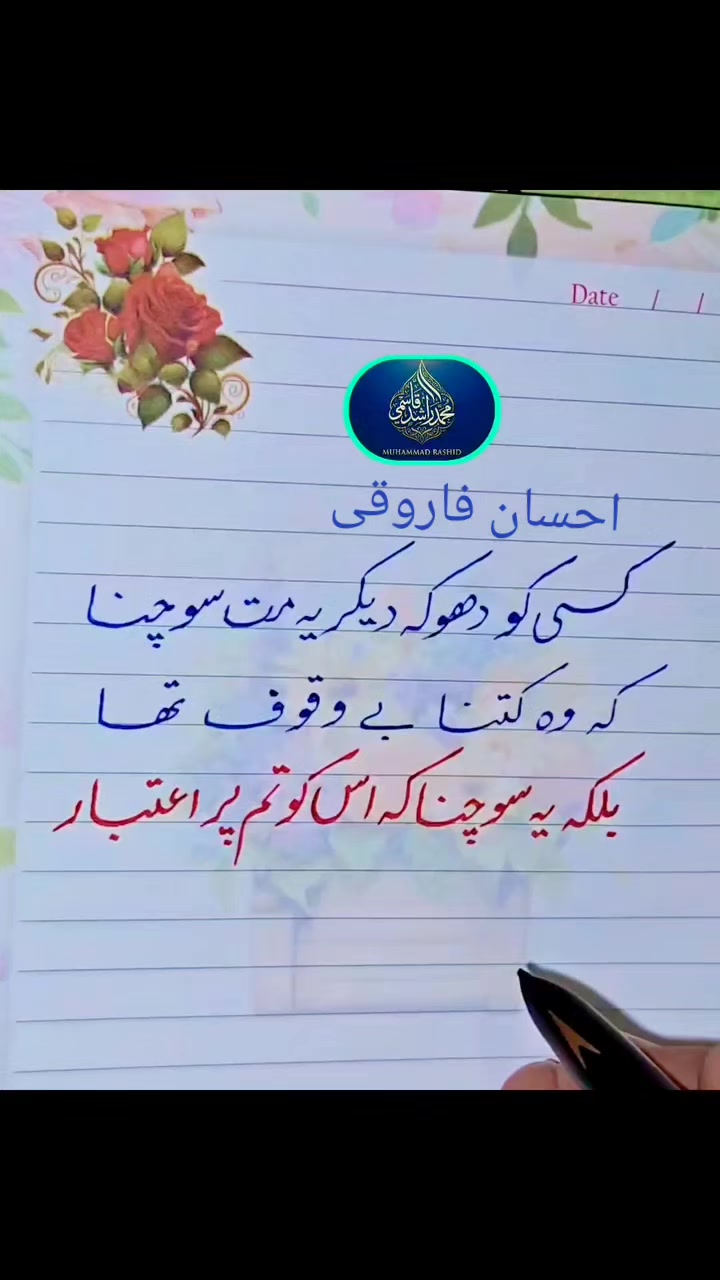 Date / /
محمد راشد قاسمی
MUHAMMAD RASHID
احسان فاروقی
کسی کو دھوکہ دیکر یہ مت سوچنا
کہ وہ کتنا بے وقوف تھا
بلکہ یہ سوچنا کہ اس کو تم پر اعتبار